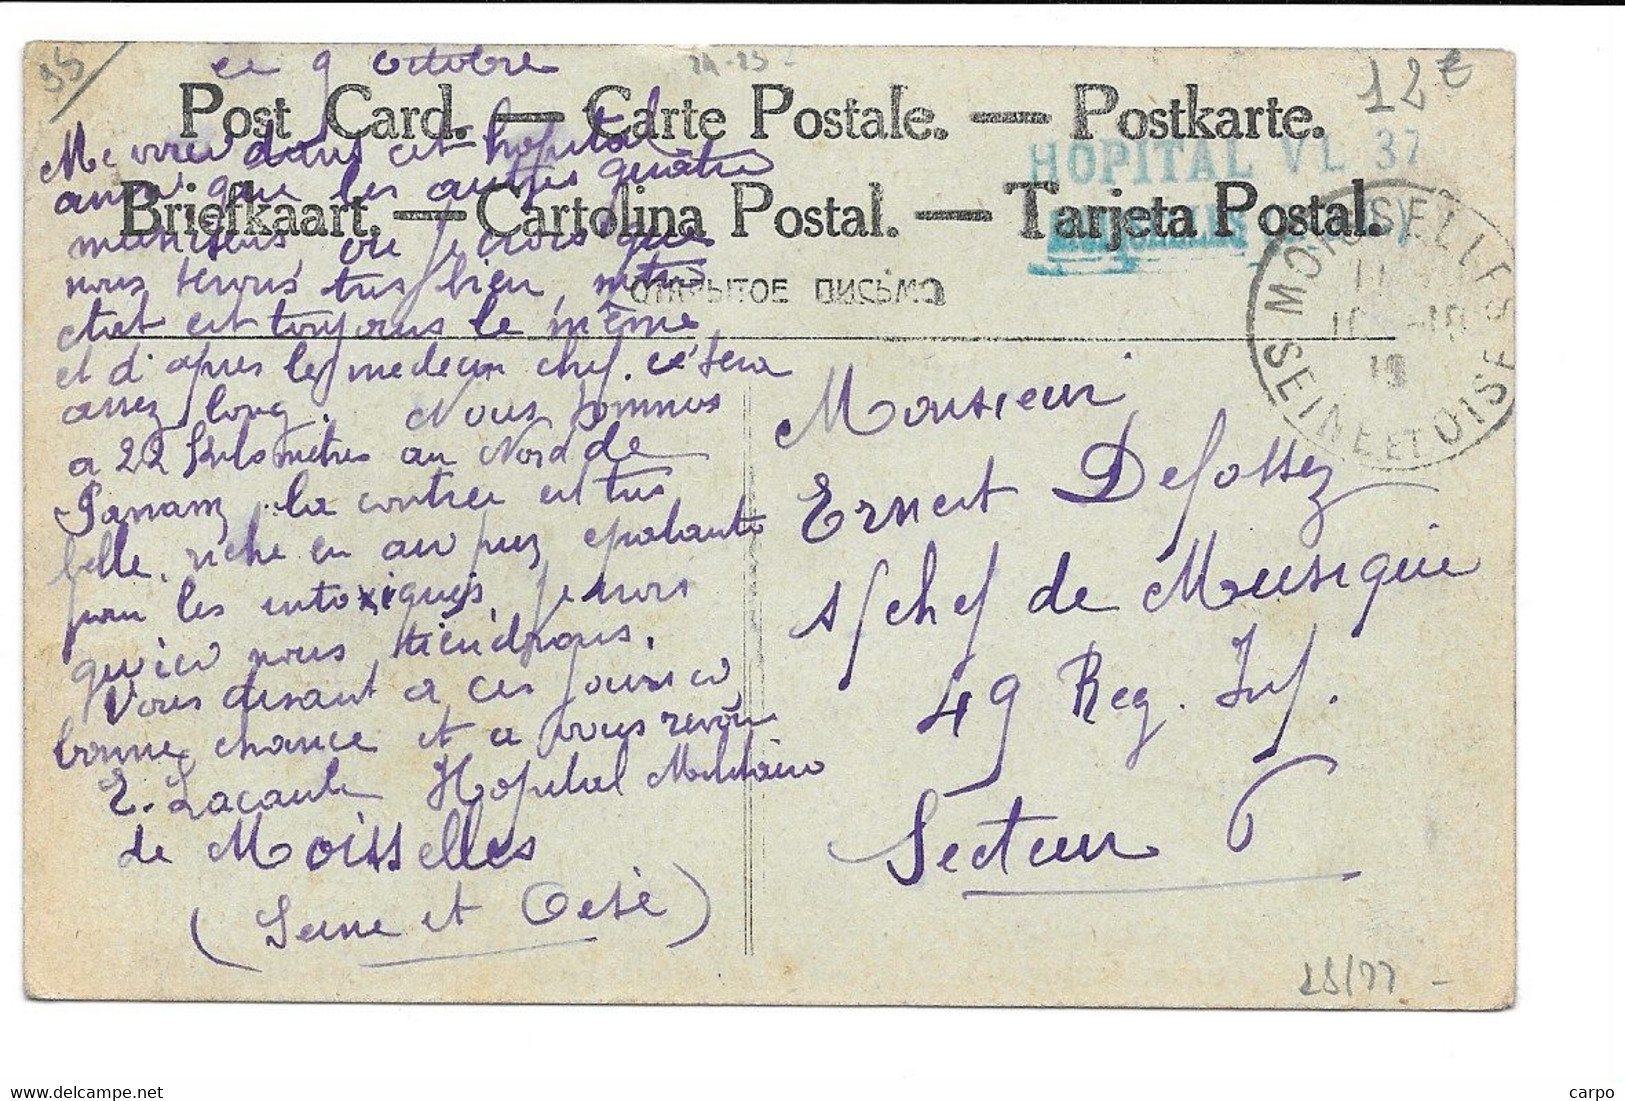 95
ce 9 octobre
24-25-
12€
Post Card. — Carte Postale. — Postkarte.
Briefkaart. — Cartolina Postal. — Tarjeta Postal.
ОТКРЫТОЕ ПИСЬМО
HOPITAL VL 37
MOISSELLES
SEINE ET OISE
Me voici dans cet hopital
ainsi que les autres quatre
musiciens, ou je crois que
nous serons très bien, notre
etat est toujours le même
et d'apres le medecin chef. ce sera
assez long. Nous sommes
a 22 Kilomètres au Nord de
Panam, la contrée est très
belle, riche en air pur, epatante
pour les intoxiqués, je crois
qu'ici nous tiendrons.
Vous disant a ces jours ci,
bonne chance et a vous revoir
E. Lacaule Hopital Militaire
de Moisselles
(Seine et Oise)
Monsieur
Ernest Defossez
s/chef de Musique
49 Reg. Inf.
Secteur 6
carpo